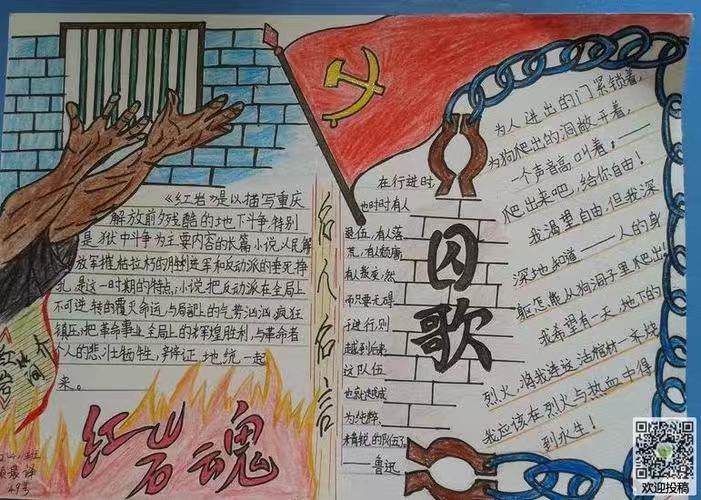 《红岩》是以描写重庆
解放前夕残酷的地下斗争,特别
是狱中斗争为主要内容的长篇小说,以人民解
放军摧枯拉朽的胜利进军和反动派的垂死挣
扎是这一时期的特点,小说把反动派在全局上
不可逆转的覆灭命运,与局部上的气势汹汹,疯狂
镇压;把革命事业全局上的辉煌胜利,与革命者
个人的悲壮牺牲,辩证地统一起
来。
红岩
简介
红岩魂
名人名言
在行进时,
也时时有人
退伍,有人落
荒,有人颓唐,
有人叛变,然
而只要无碍
于进行,则
越到后来,
这队伍
也就越成
为纯粹、
精锐的队伍了。
——鲁迅
囚歌
为人进出的门紧锁着,
为狗爬出的洞敞开着,
一个声音高叫着:——
爬出来吧,给你自由!
我渴望自由,但我深
深地知道——人的身
躯怎能从狗洞子里爬出!
我希望有一天,地下的
烈火,将我连这活棺材一齐烧
我应该在烈火与热血中得
到永生!
49号
欢迎投稿